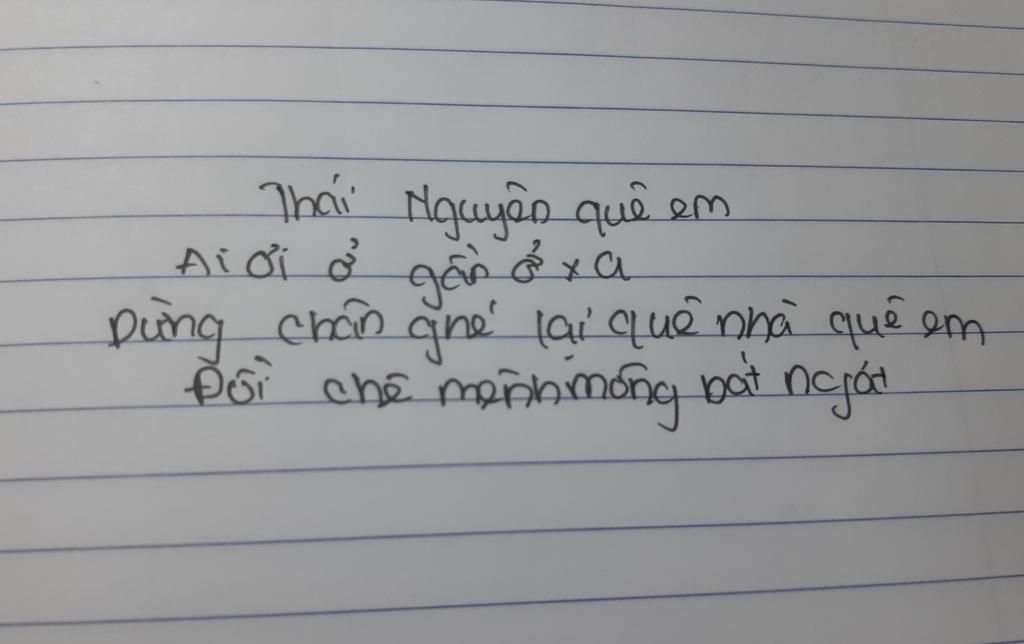 Thái Nguyên quê em
Ai ơi ở gần ở xa
Dừng chân ghé lại quê nhà quê em
Đồi chè mênh mông bát ngát